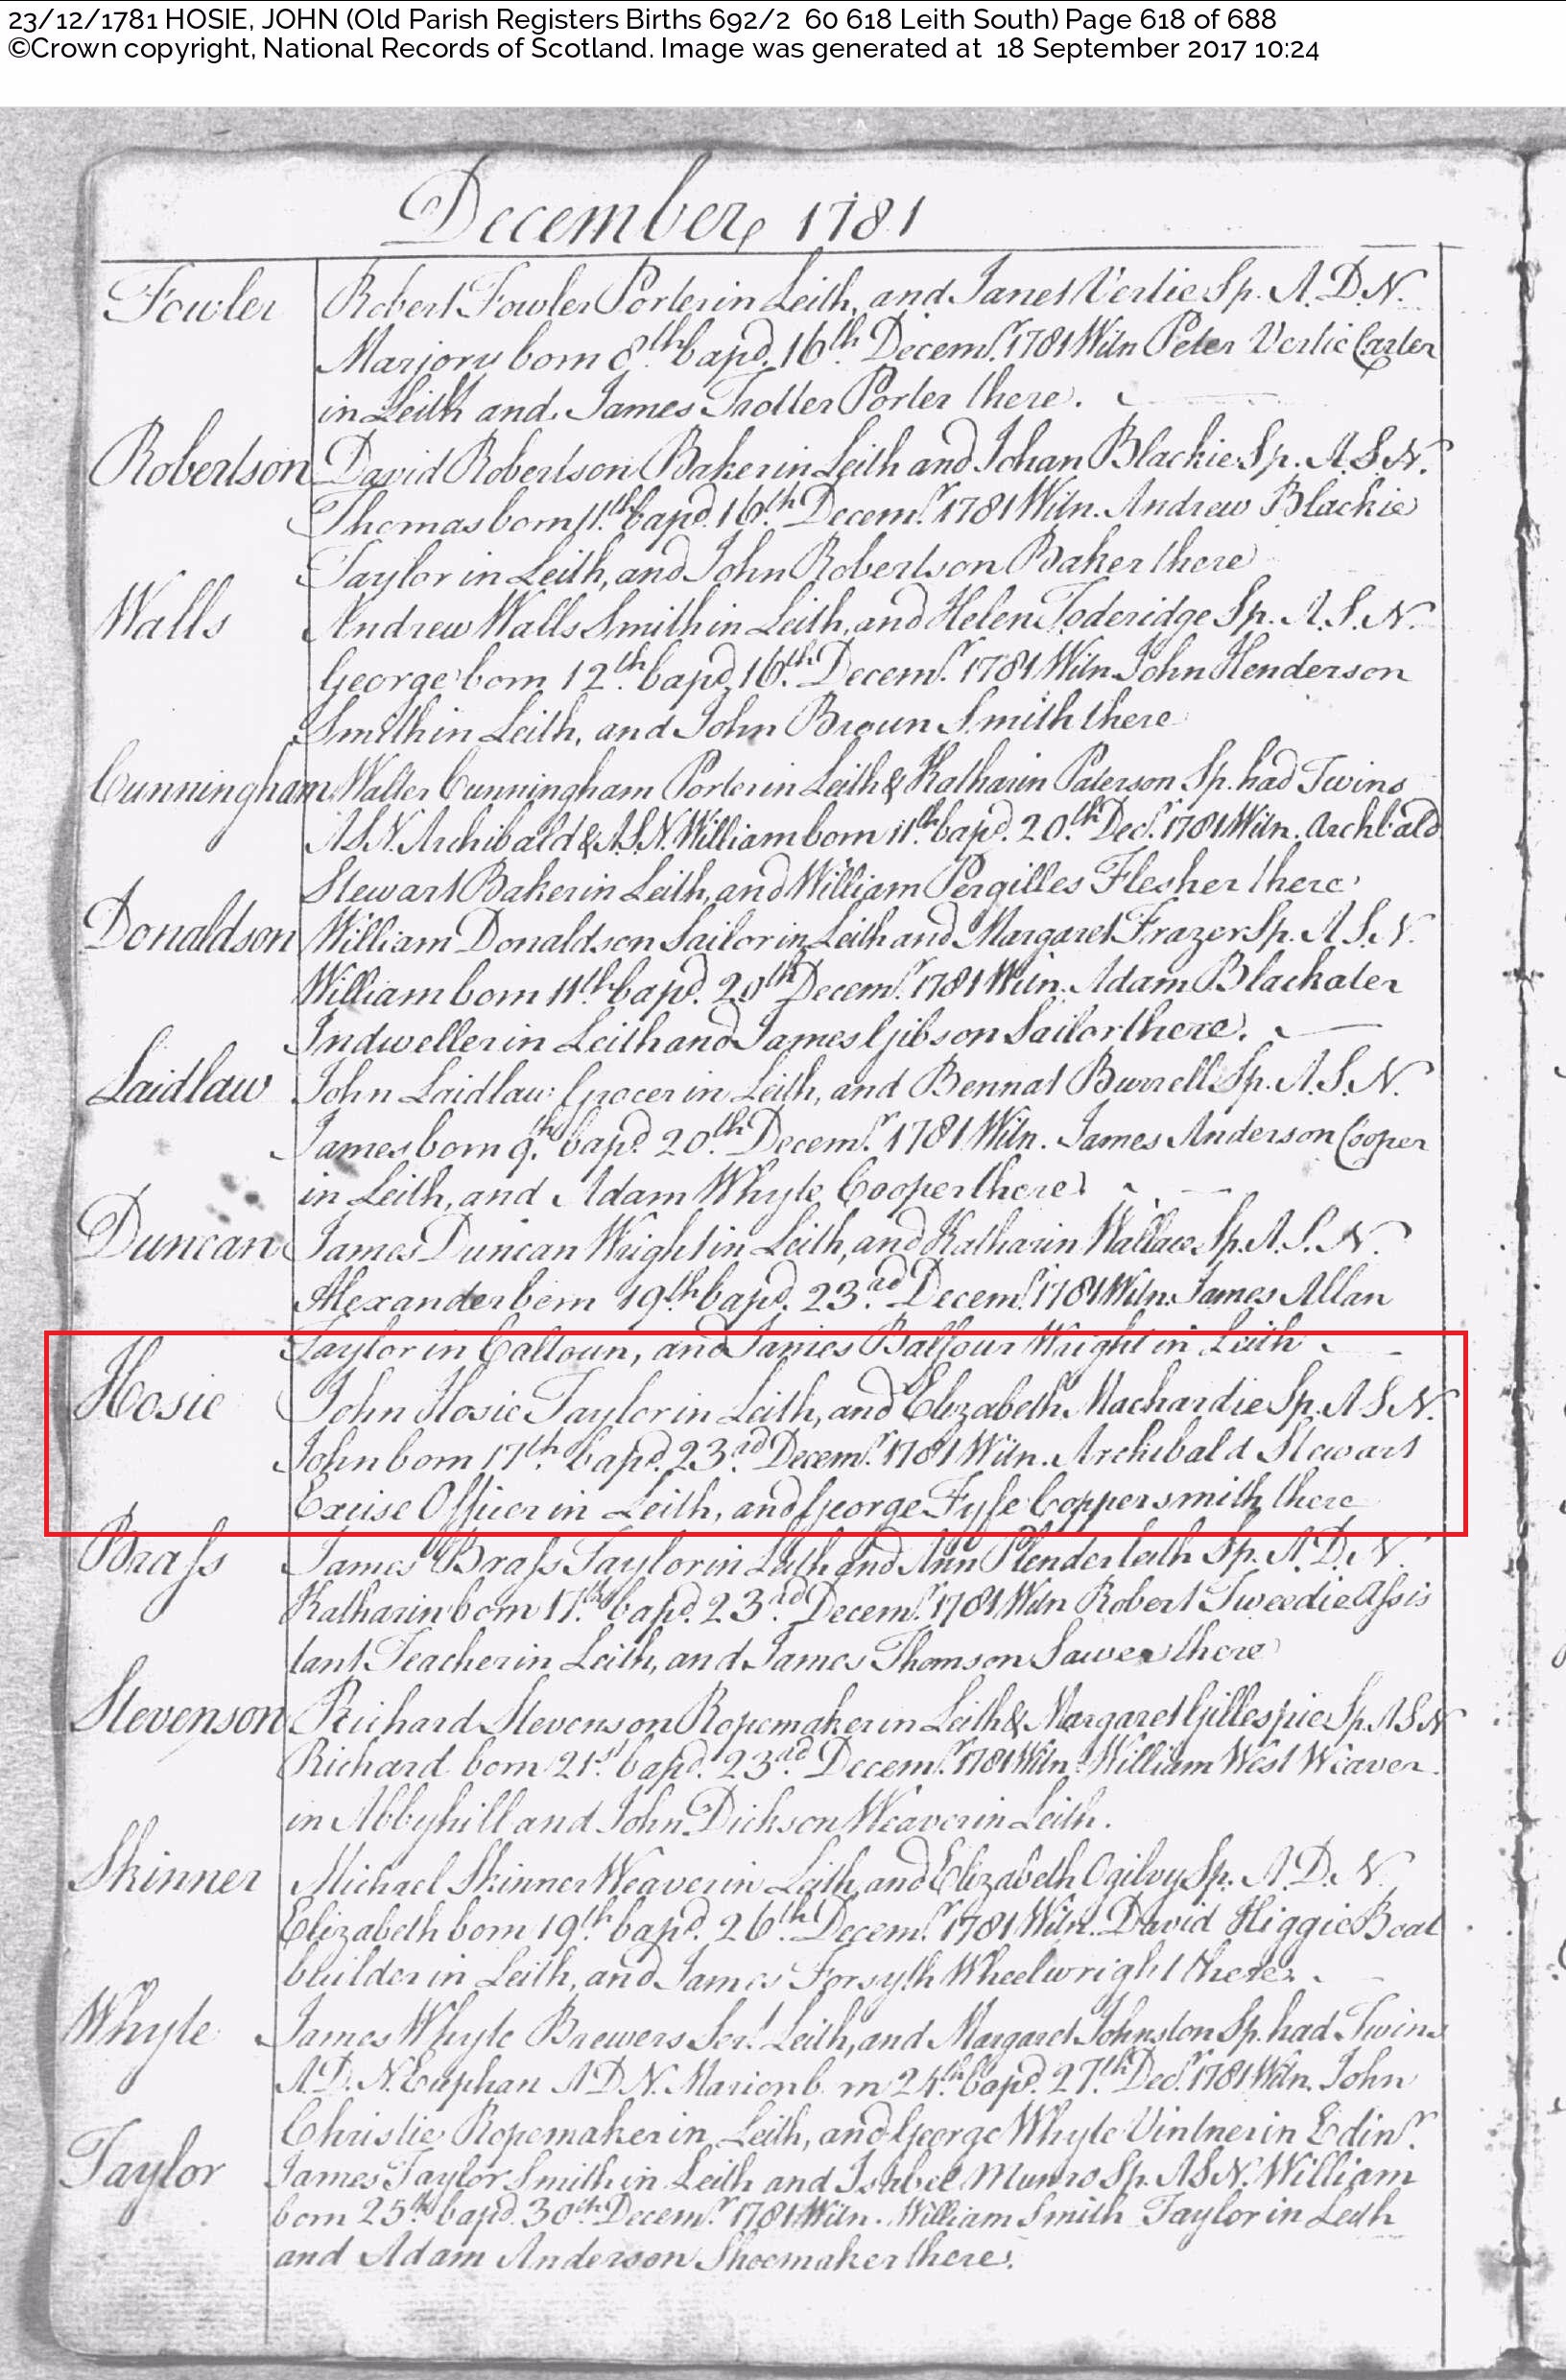 23/12/1781 HOSIE, JOHN (Old Parish Registers Births 692/2 60 618 Leith South) Page 618 of 688
©Crown copyright, National Records of Scotland. Image was generated at 18 September 2017 10:24
December, 1781
Fowler Robert Fowler Porter in Leith, and Janet Vertie Sp. A. D. N.
Marjory born 8th bapd. 16th Decemr. 1781 Witn Peter Vertie Carter
in Leith and James Trotter Porter there.
Robertson David Robertson Baker in Leith and Johan Blackie Sp. A. S. N.
Thomas born 11th bapd. 16th Decemr. 1781 Witn. Andrew Blackie
Taylor in Leith, and John Robertson Baker there
Walls Andrew Walls Smith in Leith, and Helen Toderidge Sp. A. S. N.
George born 12th bapd. 16th Decemr. 1781 Witn. John Henderson
Smith in Leith, and John Broun Smith there
Cunningham Walter Cunningham Porter in Leith & Katharin Paterson Sp. had Twins
A.S.N. Archibald & A.S.N. William born 11th bapd. 20th Decr. 1781 Witn. Archbald
Stewart Baker in Leith, and William Pergilles Flesher there
Donaldson William Donaldson Sailor in Leith and Margaret Frazer Sp. A. S. N.
William born 11th bapd. 20th Decemr. 1781 Witn. Adam Blackater
Indweller in Leith and James Gibson Sailor there.
Laidlaw John Laidlaw Grocer in Leith, and Bennat Burrell Sp. A. S. N.
James born 9th bapd. 20th Decemr. 1781 Witn. James Anderson Cooper
in Leith, and Adam Whyte Cooper there
Duncan James Duncan Wright in Leith, and Katharin Wallace Sp. A. S. N.
Alexander born 19th bapd. 23rd Decemr. 1781 Witn. James Allan
Taylor in Caltoun, and James Balfour Wright in Leith
Hosie John Hosie Taylor in Leith, and Elizabeth Machardie Sp. A S N.
John born 17th bapd. 23rd Decemr. 1781 Witn. Archibald Stewart
Excise Officer in Leith, and George Fyfe Coppersmith there
Brass James Brass Taylor in Leith and Ann Plenderleith Sp. A. D. N.
Katharin born 17th bapd. 23rd Decemr. 1781 Witn Robert Tweedie Assis
tant Teacher in Leith, and James Thomson Sawer there
Stevenson Richard Stevenson Ropemaker in Leith & Margaret Gillespie Sp. A S N
Richard born 21st bapd. 23rd Decemr. 1781 Witn. William West Weaver
in Abbyhill and John Dickson Weaver in Leith.
Skinner Michael Skinner Weaver in Leith, and Elizabeth Ogilvy Sp. A. D. N.
Elizabeth born 19th bapd. 26th Decemr. 1781 Witn. David Higgie Boat
builder in Leith, and James Forsyth Wheelwright there.
Whyte James Whyte Brewers Sert. Leith, and Margaret Johnston Sp. had Twins
A. D. N. Euphan A D N. Marion b. rn 24th bapd. 27th Decr. 1781 Witn. John
Christie Ropemaker in Leith, and George Whyte Vintner in Edinr.
Taylor James Taylor Smith in Leith and Ishbel Munro Sp. A S N. William
born 25th bapd. 30th Decemr. 1781 Witn. William Smith Taylor in Leith
and Adam Anderson Shoemaker there.